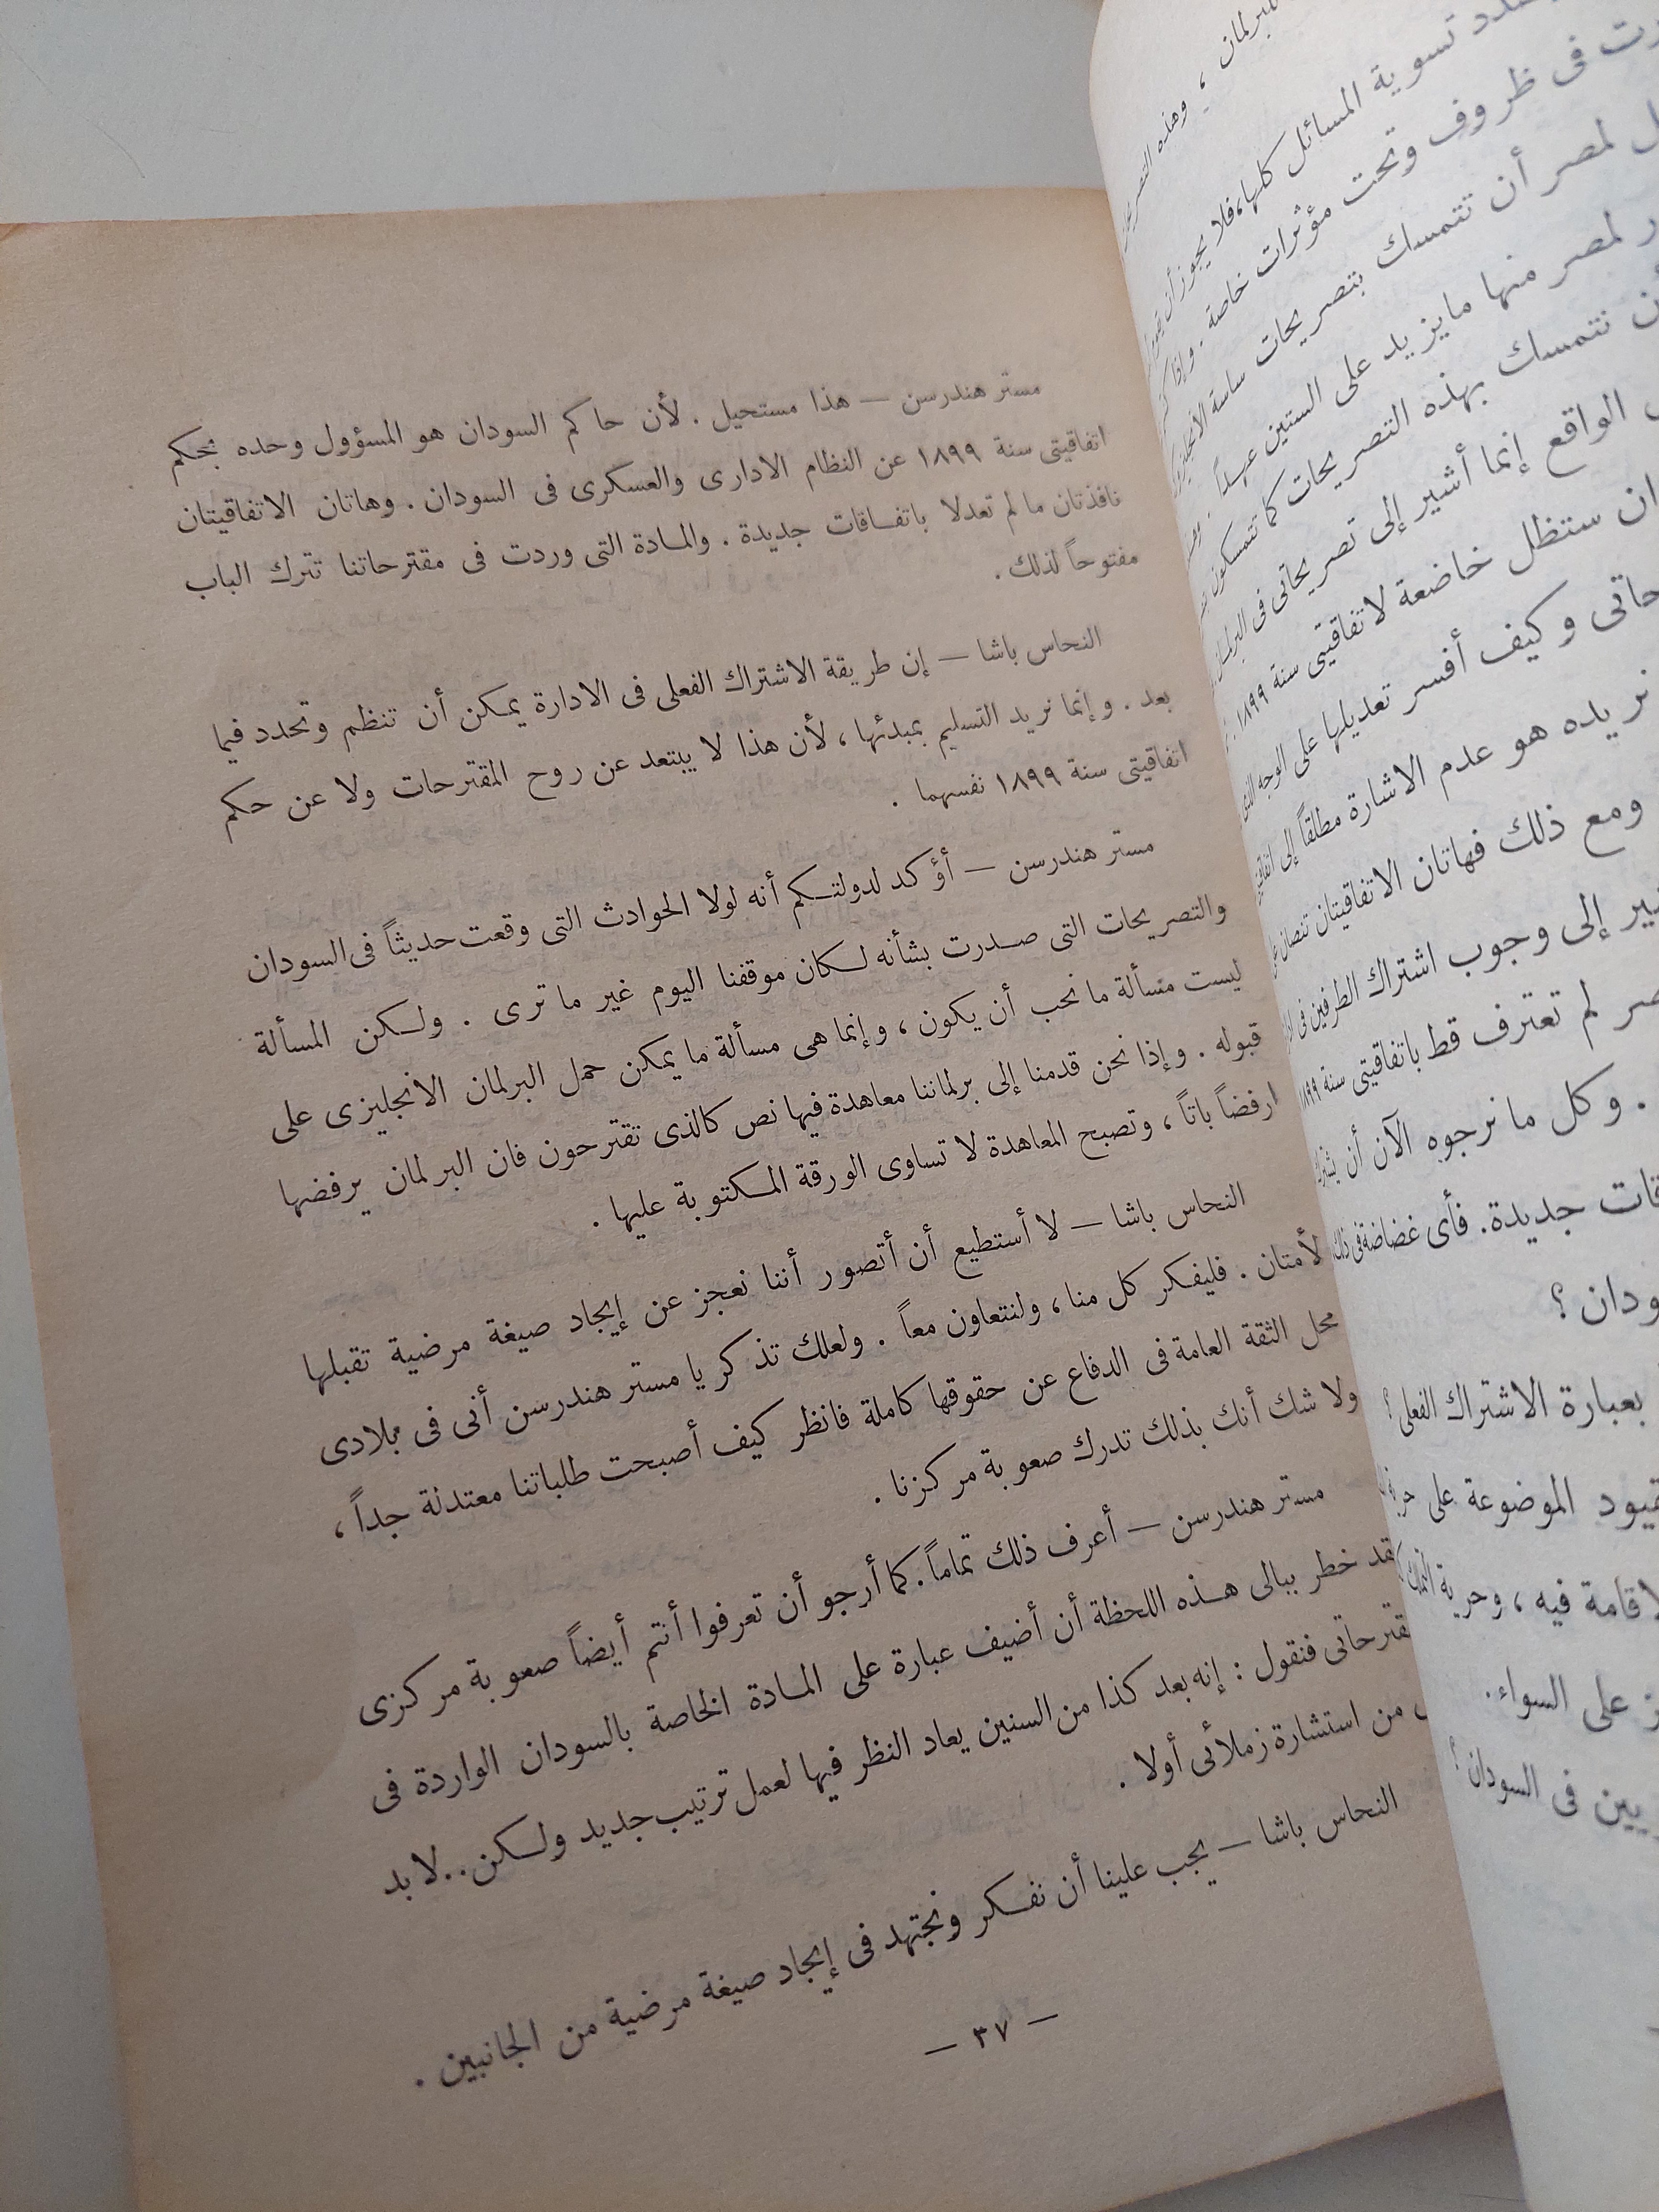 مستر هندرسن — هذا مستحيل . لأن حاكم السودان هو المسؤول وحده بحكم
اتفاقيتى سنة ١٨٩٩ عن النظام الادارى والعسكرى فى السودان . وهاتان الاتفاقيتان
نافذتان ما لم تعدلا باتفاقات جديدة . والمادة التى وردت فى مقترحاتنا تترك الباب
مفتوحاً لذلك .
النحاس باشا — إن طريقة الاشتراك الفعلى فى الادارة يمكن أن تنظم وتحدد فيما
بعد . وإنما نريد التسليم بمبدئها ، لأن هذا لا يبتعد عن روح المقترحات ولا عن حكم
اتفاقيتى سنة ١٨٩٩ نفسهما .
مستر هندرسن — أؤكد لدولتكم أنه لولا الحوادث التى وقعت حديثاً فى السودان
والتصريحات التى صدرت بشأنه لكان موقفنا اليوم غير ما ترى . ولكن المسألة
ليست مسألة ما نحب أن يكون ، وإنما هى مسألة ما يمكن حمل البرلمان الانجليزى على
قبوله . وإذا نحن قدمنا إلى برلماننا معاهدة فيها نص كالذى تقترحون فان البرلمان يرفضها
رفضاً باتاً ، وتصبح المعاهدة لا تساوى الورقة المكتوبة عليها .
النحاس باشا — لا أستطيع أن أتصور أننا نعجز عن إيجاد صيغة مرضية تقبلها
لأمتان . فليفكر كل منا ، ولنتعاون معاً . ولعلك تذكر يا مستر هندرسن أنى فى بلادى
محل الثقة العامة فى الدفاع عن حقوقها كاملة فانظر كيف أصبحت طلباتنا معتدلة جداً ،
ولا شك أنك بذلك تدرك صعوبة مركزنا .
مستر هندرسن — أعرف ذلك تماماً . كما أرجو أن تعرفوا أنتم أيضاً صعوبة مركزى
قد خطر ببالى هذه اللحظة أن أضيف عبارة على المادة الخاصة بالسودان الواردة فى
قترحاتى فنقول : إنه بعد كذا من السنين يعاد النظر فيها لعمل ترتيب جديد ولكن .. لا بد
من استشارة زملائى أولا .
النحاس باشا — يجب علينا أن نفكر ونجتهد فى إيجاد صيغة مرضية من الجانبين .
— ٣٧ —
لبرلمان ، وهذه
تسوية المسائل كلها ، فلا يجوز أن
فى ظروف وتحت مؤثرات خاصة . وإذا
لمصر أن تتمسك بتصريحات ساسة
لمصر منها ما يزيد على الستين عهداً .
نتمسك بهذه التصريحات كما تتمسكون
الواقع إنما أشير إلى تصريحاتى فى البرلمان
ستظل خاضعة لاتفاقيتى سنة ١٨٩٩ .
وكيف أفسر تعديلها على الوجه الذى
نريده هو عدم الاشارة مطلقاً إلى
ومع ذلك فهاتان الاتفاقيتان تنصان
إلى وجوب اشتراك الطرفين فى
لم تعترف قط باتفاقيتى سنة ١٨٩٩
. وكل ما نرجوه الآن أن
جديدة . فأى غضاضة فى ذلك
ودان ؟
بعبارة الاشتراك الفعلى ؟
الموضوعة على
لاقامة فيه ، وحرية
على السواء .
فى السودان ؟